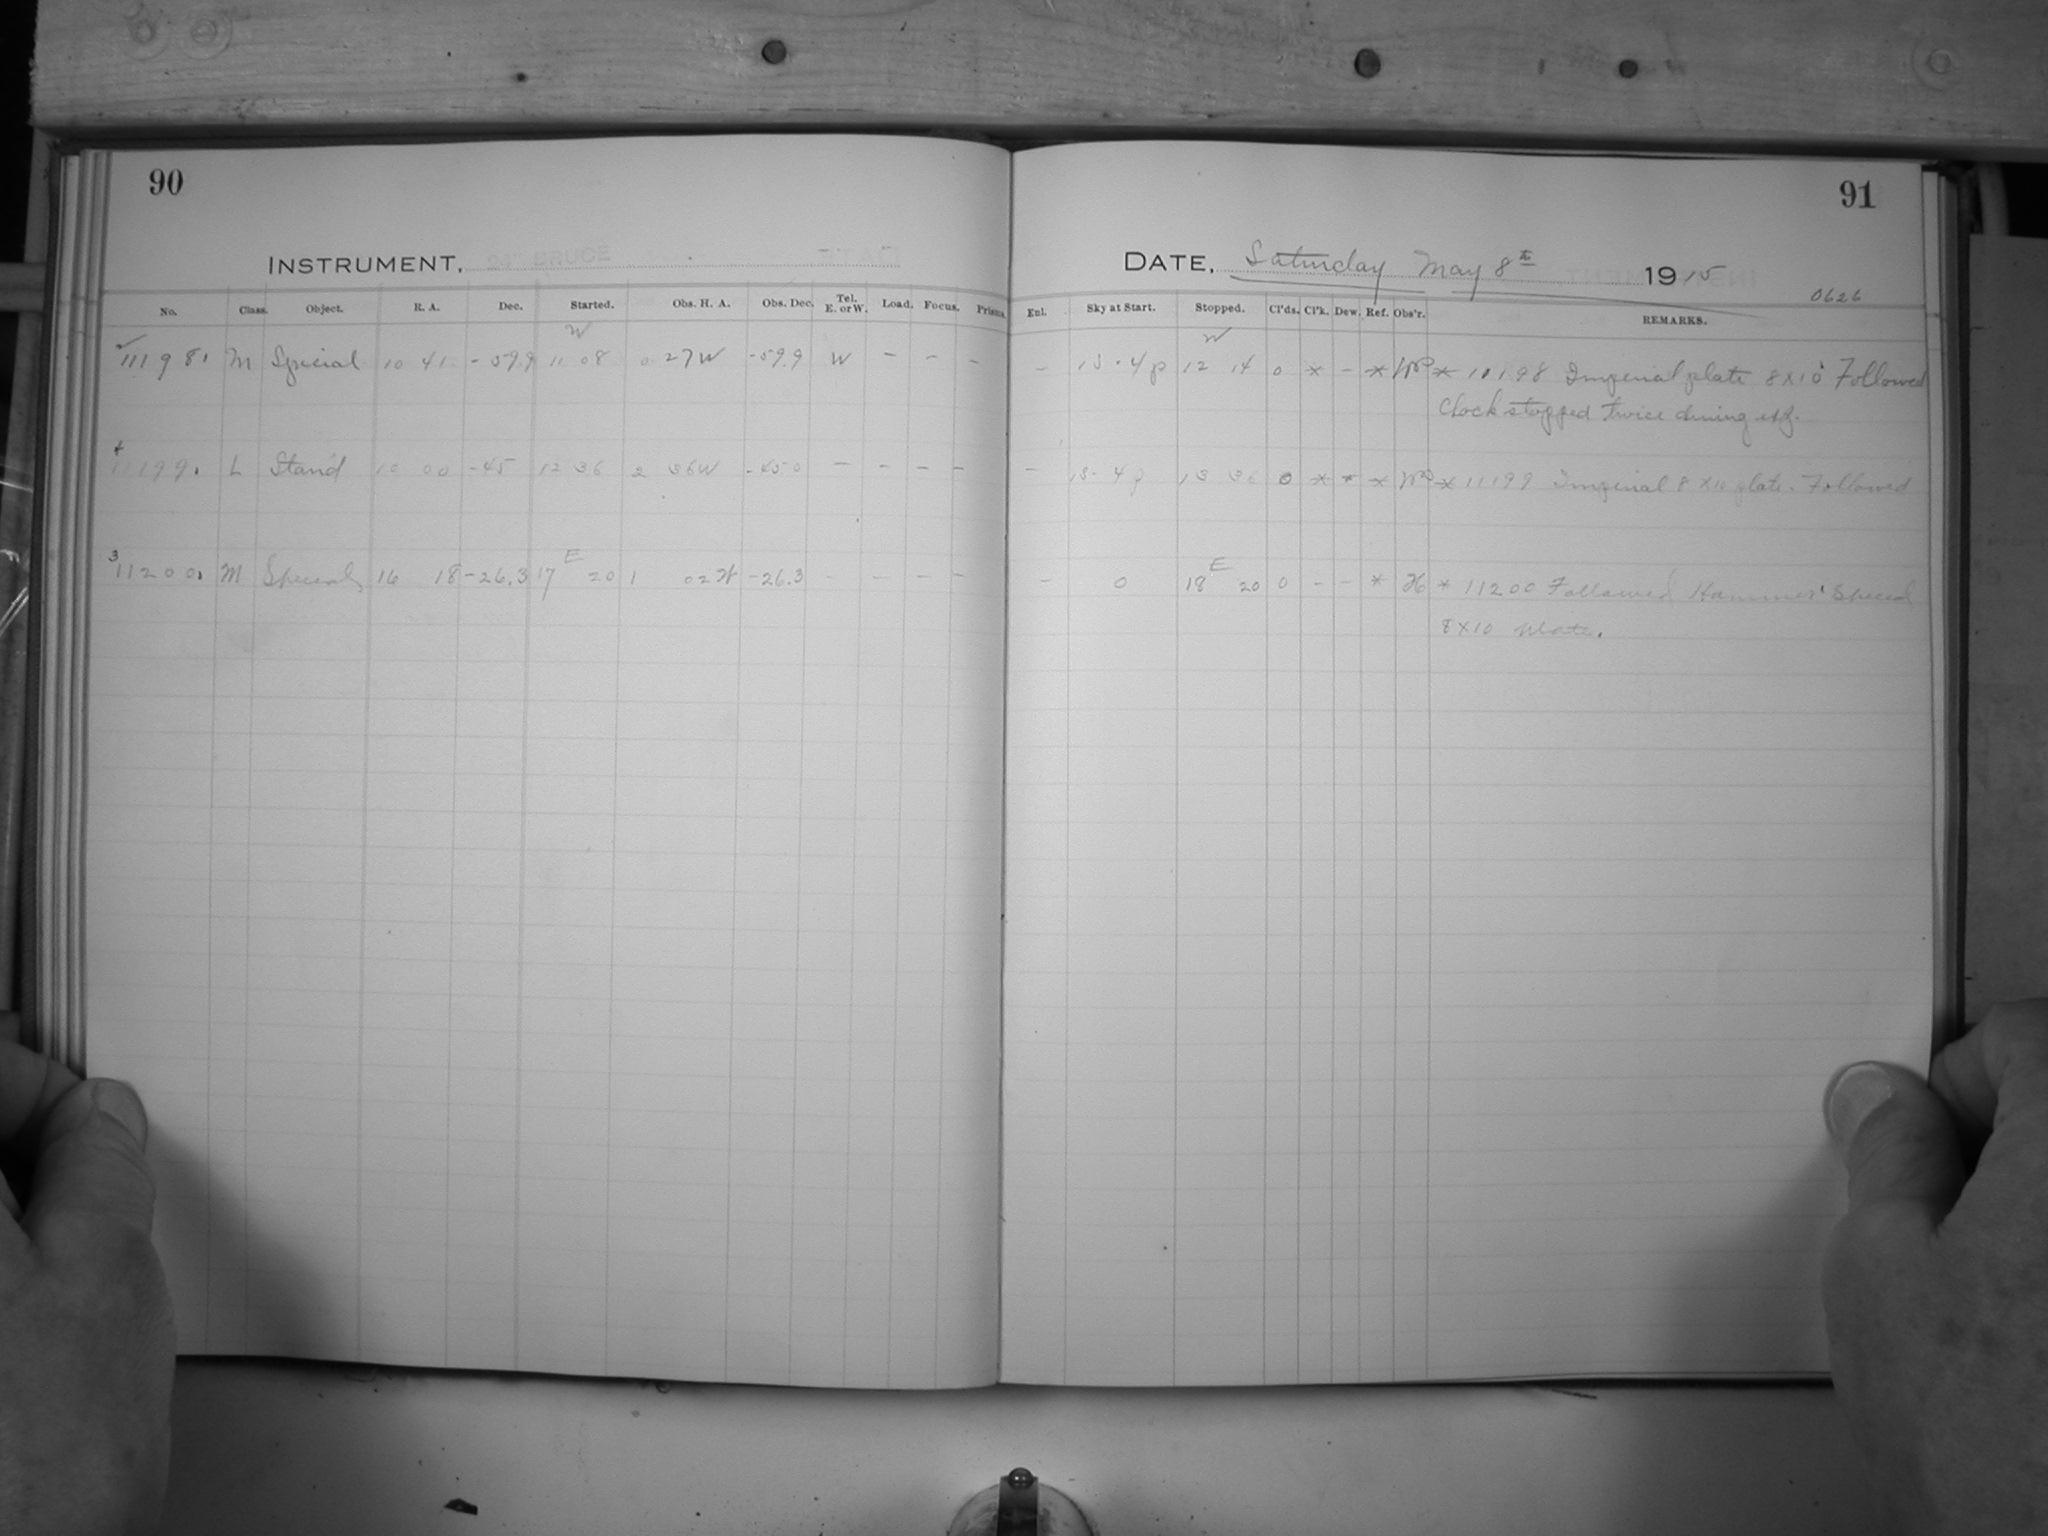 90
INSTRUMENT, 24" BRUCE
No. Class. Object. R. A. Dec. Started. Obs. H. A. Obs. Dec. Tel. E. or W. Load. Focus. Prisms.
W
11198. M Special 10 41 -59.9 11 08 0 27W -59.9 W - - -
11199. L Stand 10 00 -45 12 36 2 36W -45 0 - - - -
3
E
11200. M Special 16 18 -26.3 17 20 1 02 W -26.3 - - - -
91
DATE, Saturday May 8th 1915
0626
Enl. Sky at Start. Stopped. Cl'ds. Cl'k. Dew. Ref. Obs'r. REMARKS.
W
- 12 14 0 * - * * 11198 Imperial plate 8x10 Followed
Clock stopped twice during exp.
- 13 36 0 * * * * 11199 Imperial 8x10 plate. Followed
E
- 0 18 20 0 - - * * 11200 Followed Hammer Special
8x10 plate.